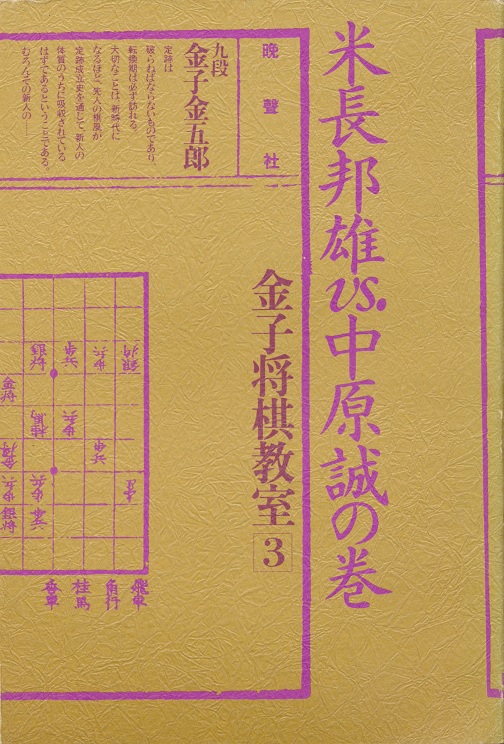 米長邦雄vs.中原誠の巻
金子将棋教室3
晩聲社
九段
金子金五郎
定跡は
破らねばならないものであり、
転換期は必ず訪れる。
大切なことは、新時代に
なるほど、先人の棋風が
定跡成立史を通じて、新人の
体質のうちに吸収されている
はずであるということである。
むろん、その新人の――
飛車
角行
桂馬
香車